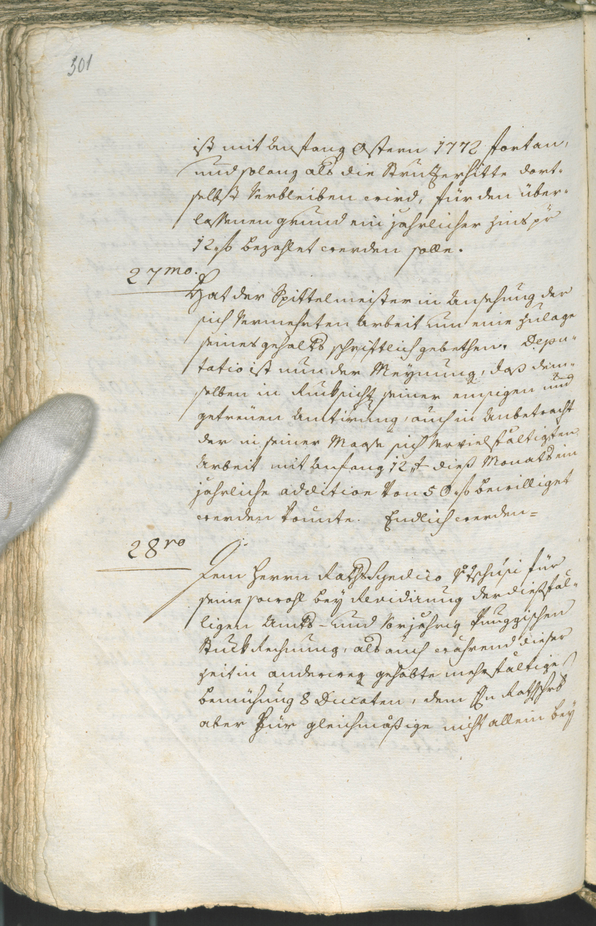 501
ist mit Anfang Ostern 1772 fortan,
und solang als die Strützerhitte dort-
selbst verbleiben wird, für den über-
lassenen grund ein jährlicher Zins pr
12 f bezahlet werden solle.
27mo.
Hat der Spittelmeister in Ansehung der
sich vermehrten Arbeit um eine Zulage
seines gehalts schriftlich gebethen. Depu-
tatio ist nun der Meynung, daß dem-
selben in Rucksicht seiner emsigen und
getreuen, auch in Anbetracht
der in seiner Maaße sich vervielfältigten
Arbeit mit Anfang 12 dieß Monats ein
jährliche addition von 50 f bewilliget
werden könnte. Endlich werden=
28vo
Dem Herrn Raths Syndico für
seine sowohl bey Revidirung der dießfäl-
ligen Amts- und vorjährig
Stuck Rechnung, als auch während dieser
Zeit in anderweg gehabte mehrfältige
bemühung 8 Ducaten, dem Hn Rathschrb
aber für gleichmäßige nicht allein bey